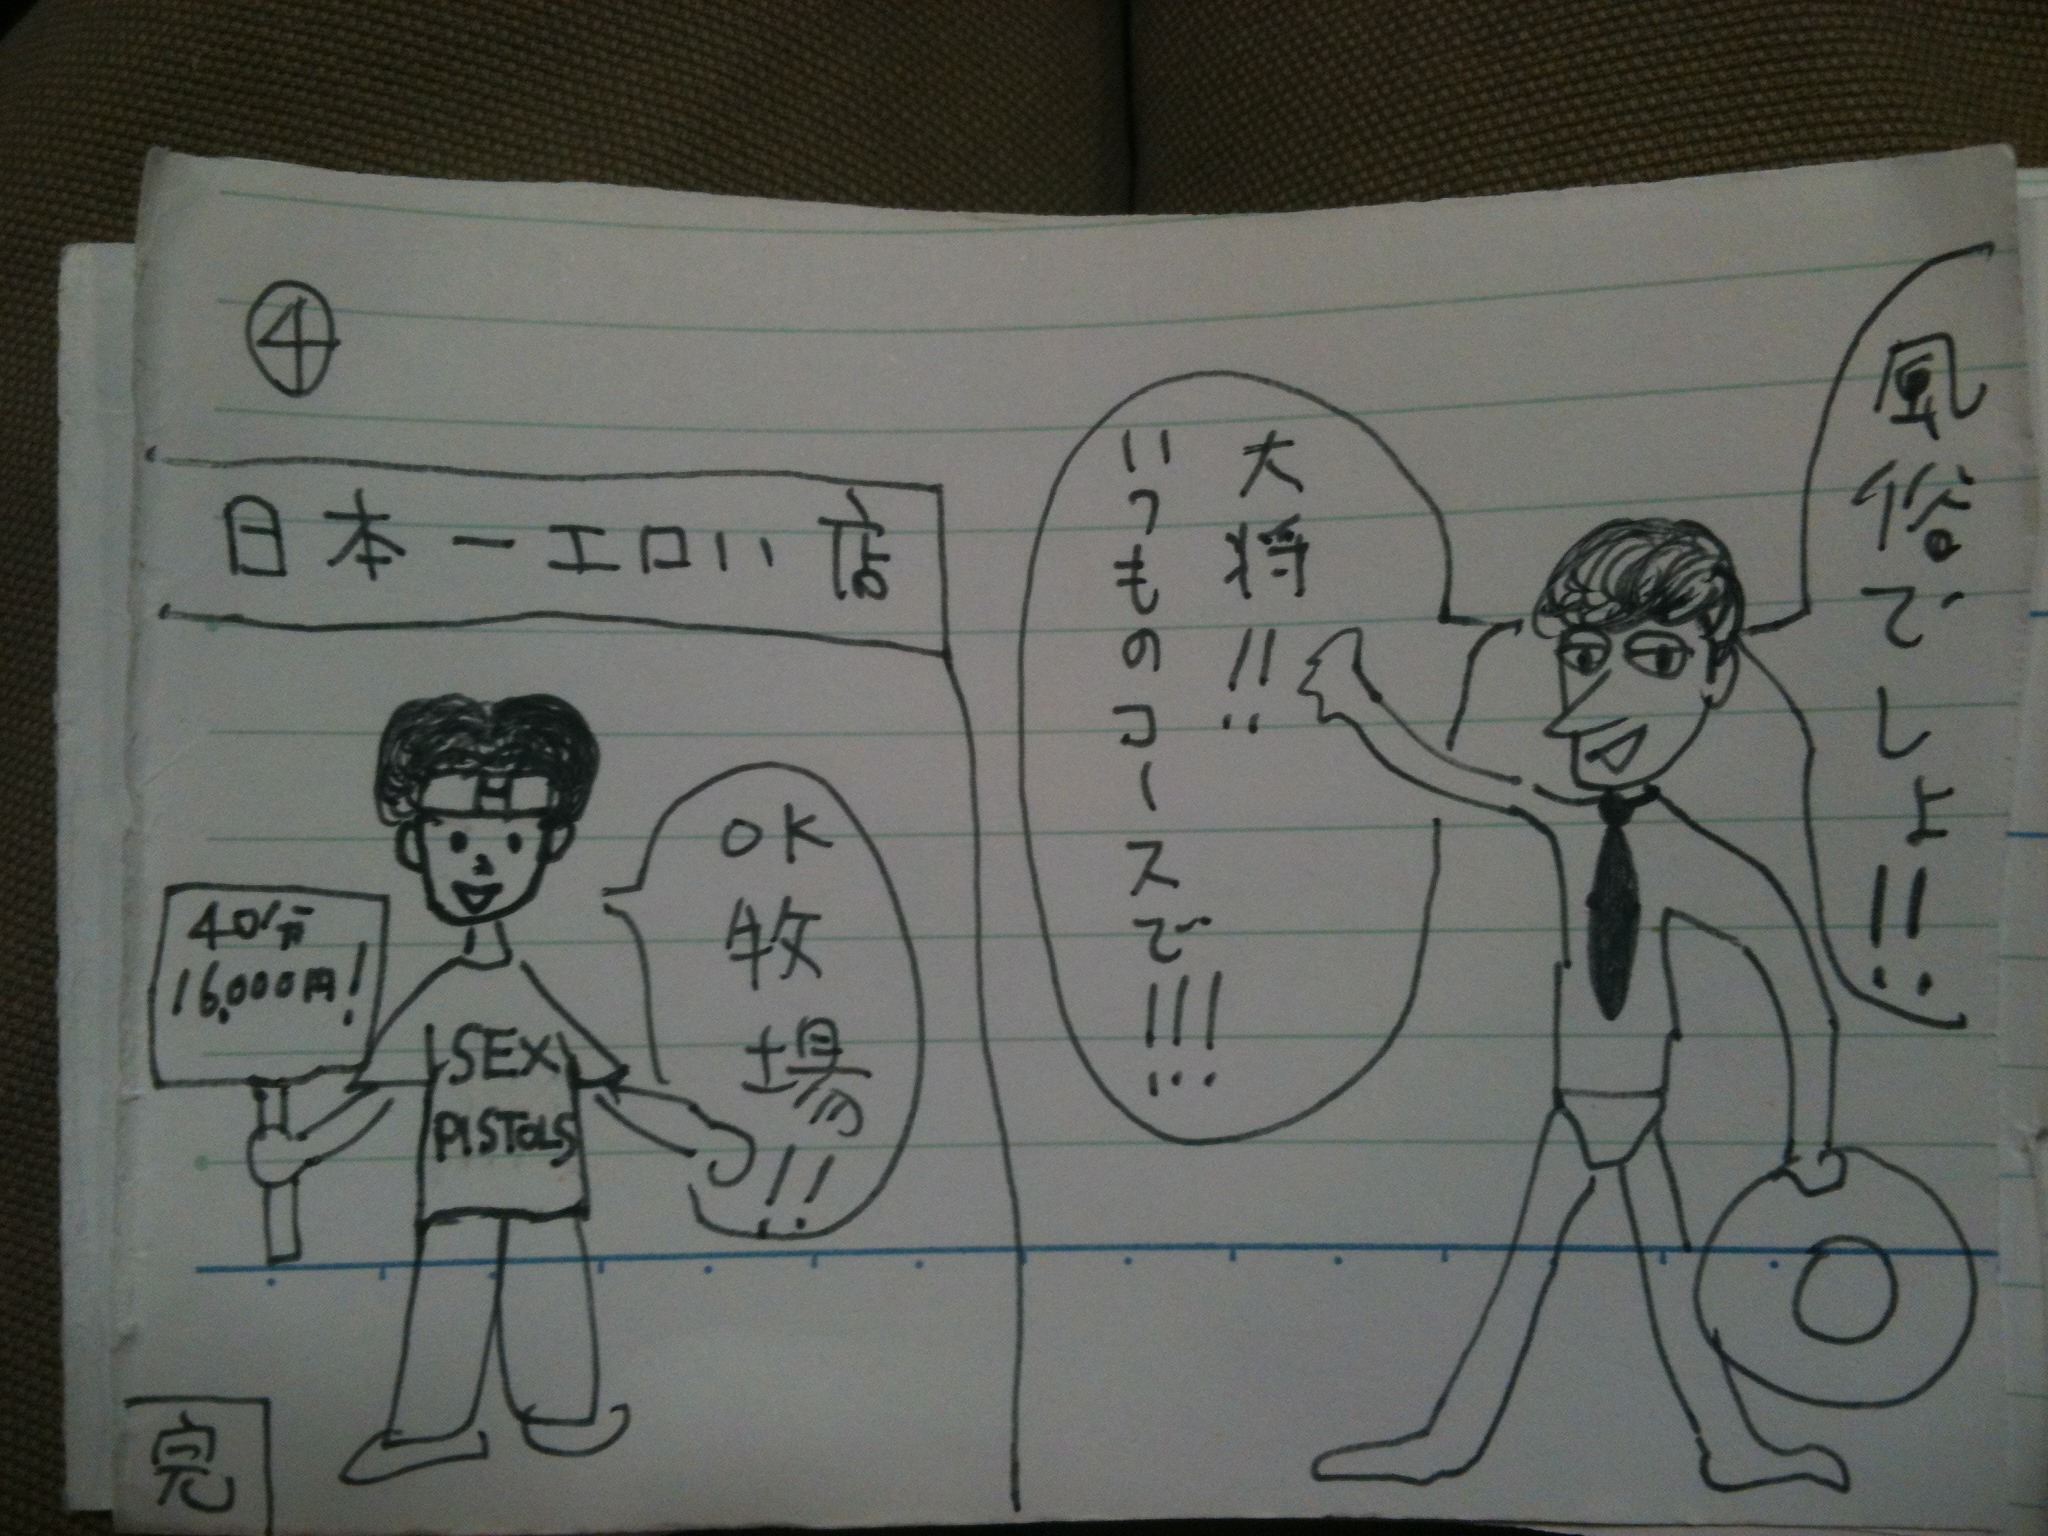 ④
風俗でしょ!!
大将!!
いつものコースで!!!
日本一エロい店
OK牧場!!
40分
16,000円!
SEX
PISTOLS
完